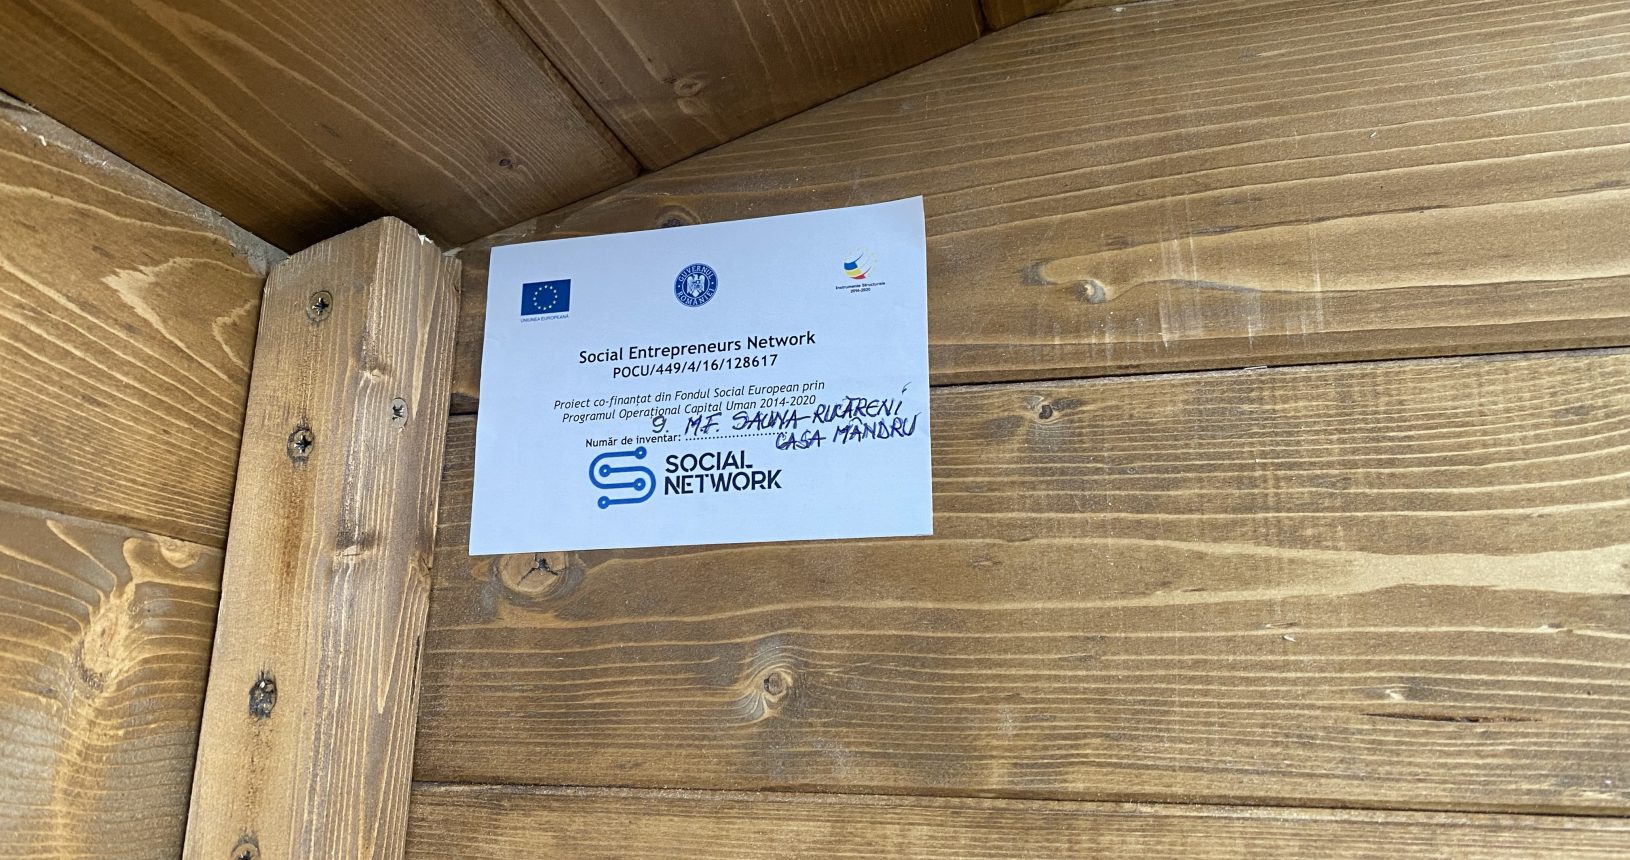 UNIUNEA EUROPEANĂ
GUVERNUL ROMÂNIEI
Instrumente Structurale
2014-2020
Social Entrepreneurs Network
POCU/449/4/16/128617
Proiect co-finanțat din Fondul Social European prin
Programul Operațional Capital Uman 2014-2020
9. M.F. SAUNA RUCĂRENI
Număr de inventar: ........................ CASA MÂNDRU
SOCIAL
NETWORK